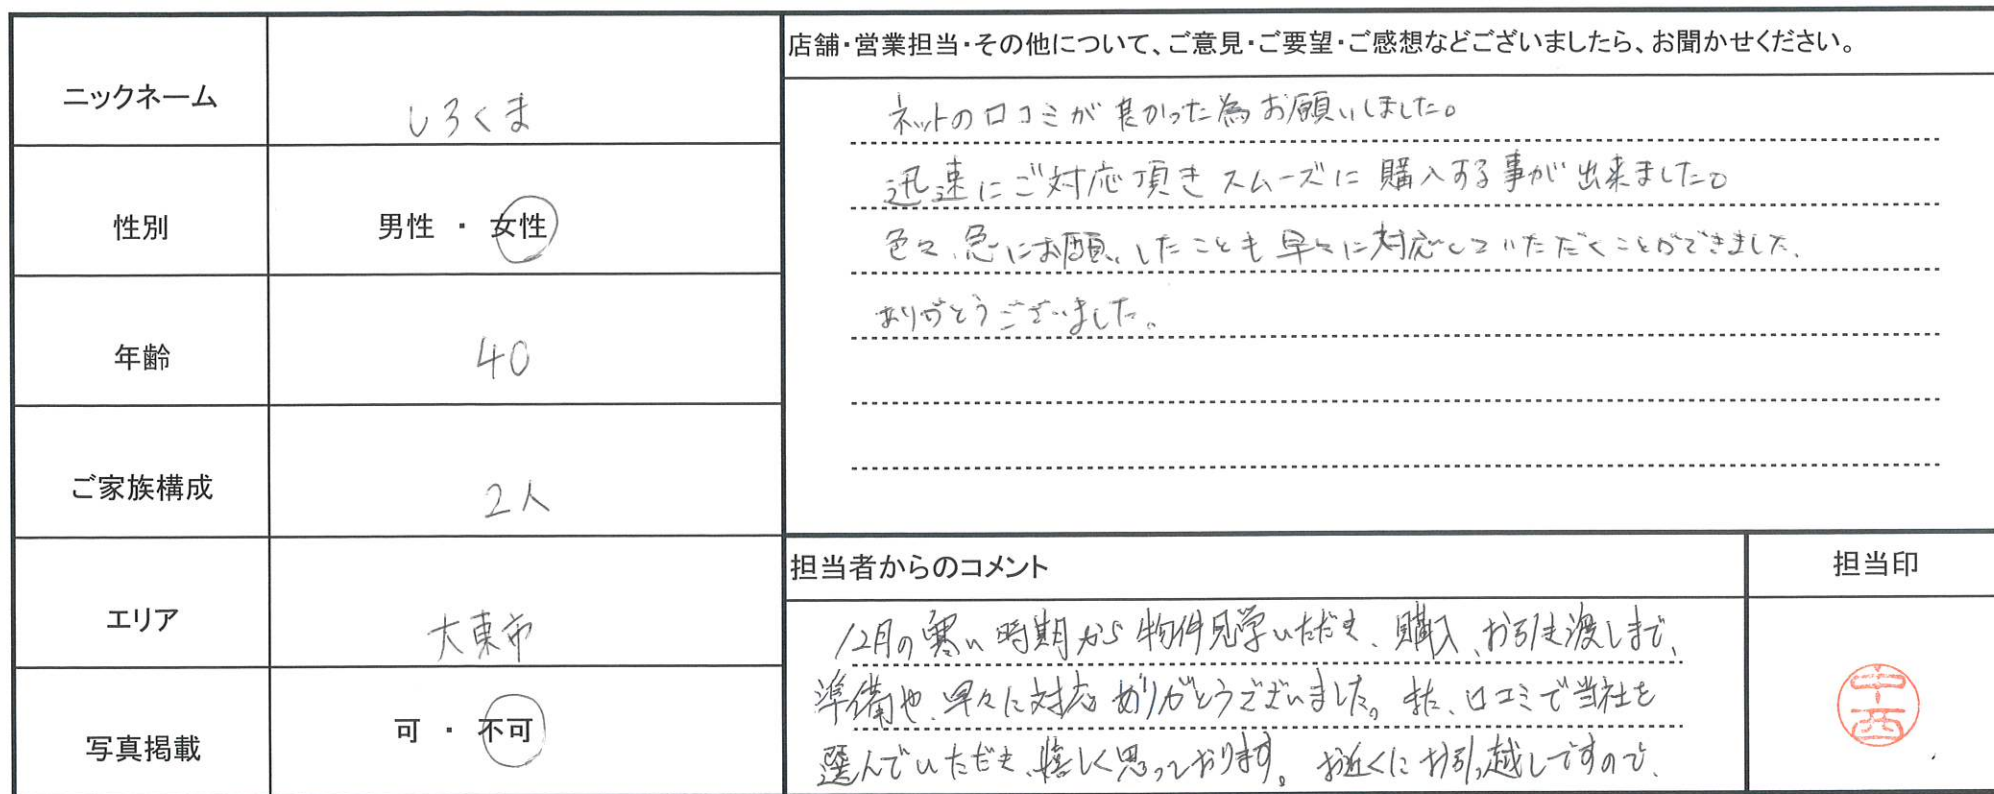 ニックネーム
しろくま
性別
男性 ・ 女性
年齢
40
ご家族構成
2人
エリア
大東市
写真掲載
可 ・ 不可
店舗・営業担当・その他について、ご意見・ご要望・ご感想などございましたら、お聞かせください。
ネットの口コミが良かった為お願いしました。
迅速にご対応頂きスムーズに購入する事が出来ました。
色々、急にお願いしたことも早々に対応していただくことができました。
ありがとうございました。
担当者からのコメント
12月の寒い時期から物件見学いただき、購入、お引き渡しまで、
準備や、早々に対応ありがとうございました。また、口コミで当社を
選んでいただき、嬉しく思っております。お近くにお引っ越しですので、
担当印
中西